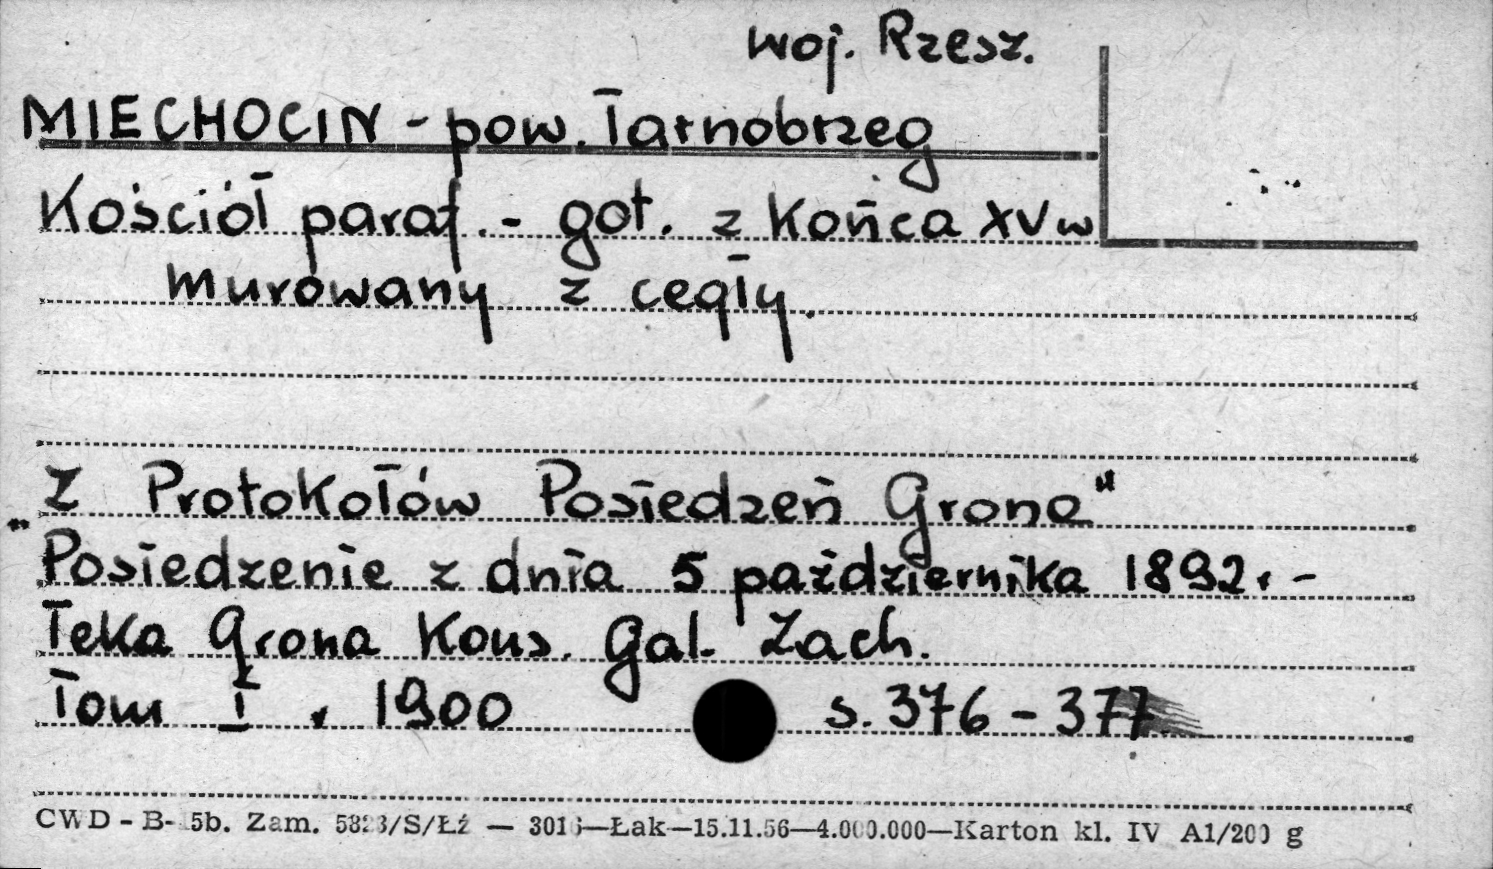 woj. Rzesz.
MIECHOCIN - pow. Tarnobrzeg
Kościół paraf. - got. z końca XV w
murowany z cegły.
Z Protokołów Posiedzeń Grona"
"Posiedzenie z dnia 5 października 1892. -
Teka Grona Kons. Gal. Zach.
Tom I. 1900 s. 376 - 377
CWD - B- 5b. Zam. /S/Łź — —Łak—15.11.56—4.000.000—Karton kl. IV A1/200 g